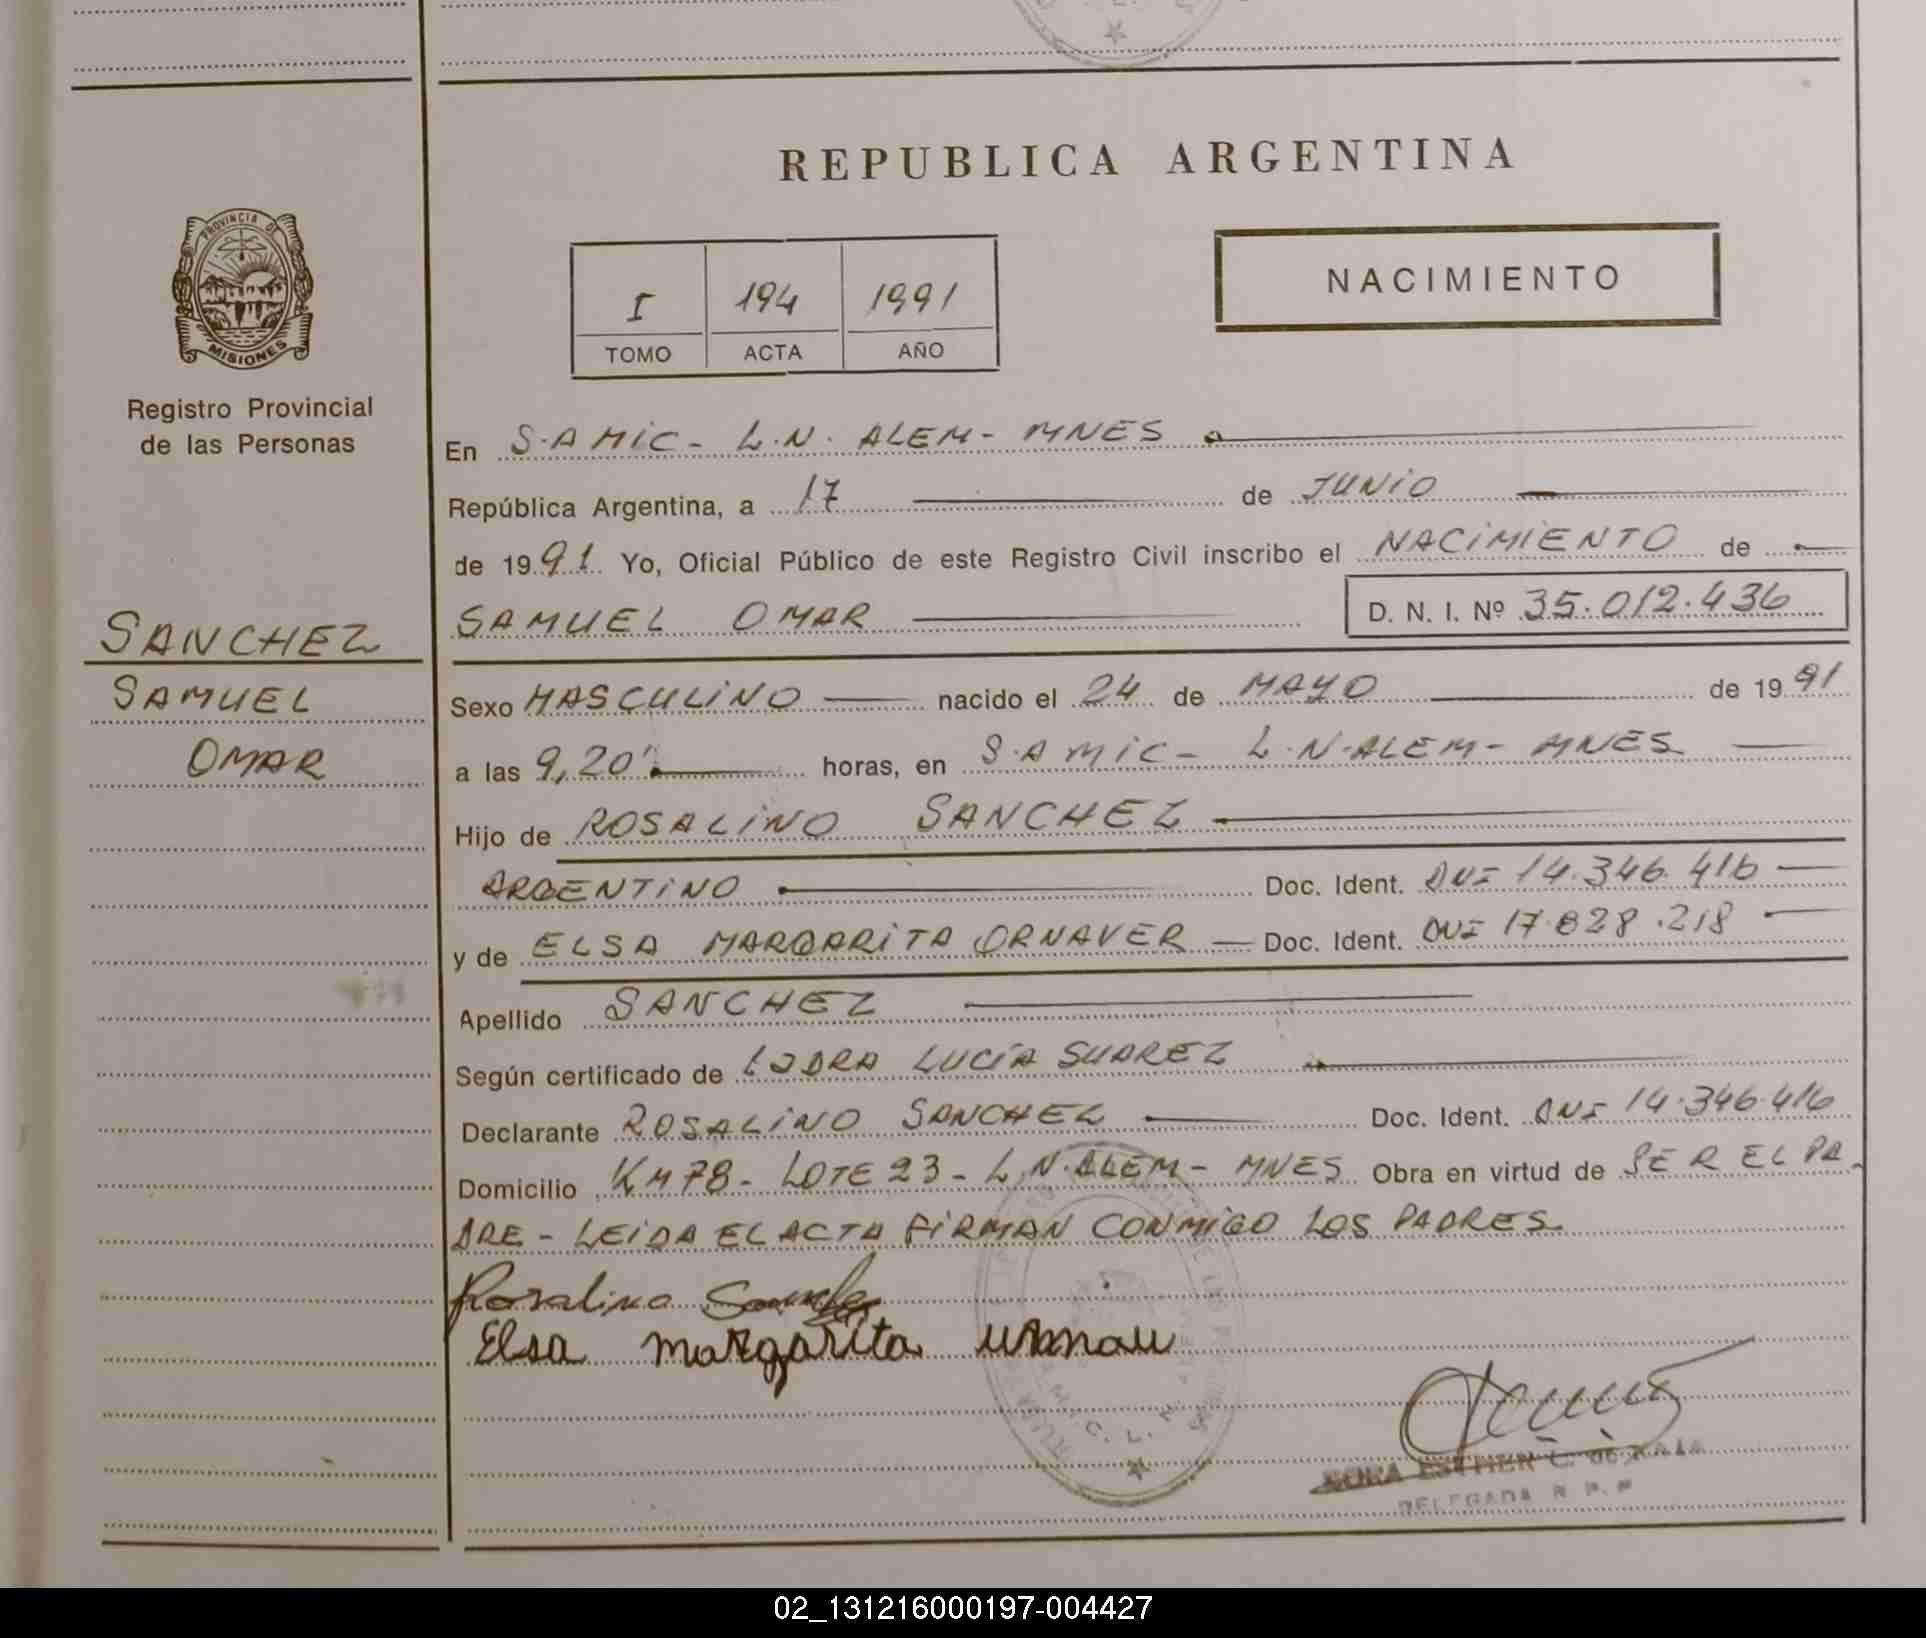 REPUBLICA ARGENTINA
PROVINCIA DE
MISIONES
Registro Provincial
de las Personas
I 194 1991
TOMO ACTA AÑO
NACIMIENTO
En S.A MIC - L.N. ALEM - MNES
República Argentina, a 17 de JUNIO
de 1991 Yo, Oficial Público de este Registro Civil inscribo el NACIMIENTO de
SAMUEL OMAR
D. N. I. Nº 35.012.436
SANCHEZ
SAMUEL
OMAR
Sexo MASCULINO nacido el 24 de MAYO de 1991
a las 9,20' horas, en S.A MIC - L.N. ALEM - MNES
Hijo de ROSALINO SANCHEZ
ARGENTINO Doc. Ident. DNI 14.346.416
y de ELSA MARGARITA ORNAVER Doc. Ident. DNI 17.828.218
Apellido SANCHEZ
Según certificado de LUCÍA SUAREZ
Declarante ROSALINO SANCHEZ Doc. Ident. DNI 14.346.416
Domicilio KM 78 - LOTE 23 - L.N. ALEM - MNES Obra en virtud de SER EL PA
DRE - LEIDA EL ACTA FIRMAN CONMIGO LOS PADRES
Rosalino
Elsa margarita
ESTHER
DELEGADA R. P. P.
02_131216000197-004427